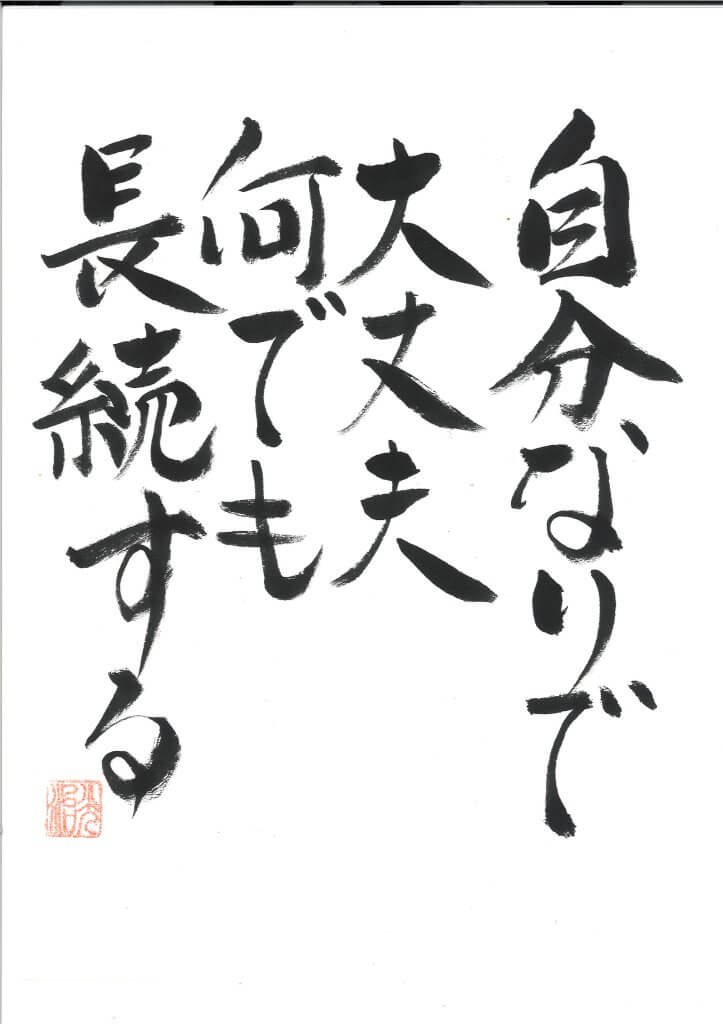 自分なりで
大丈夫
何でも
長続する